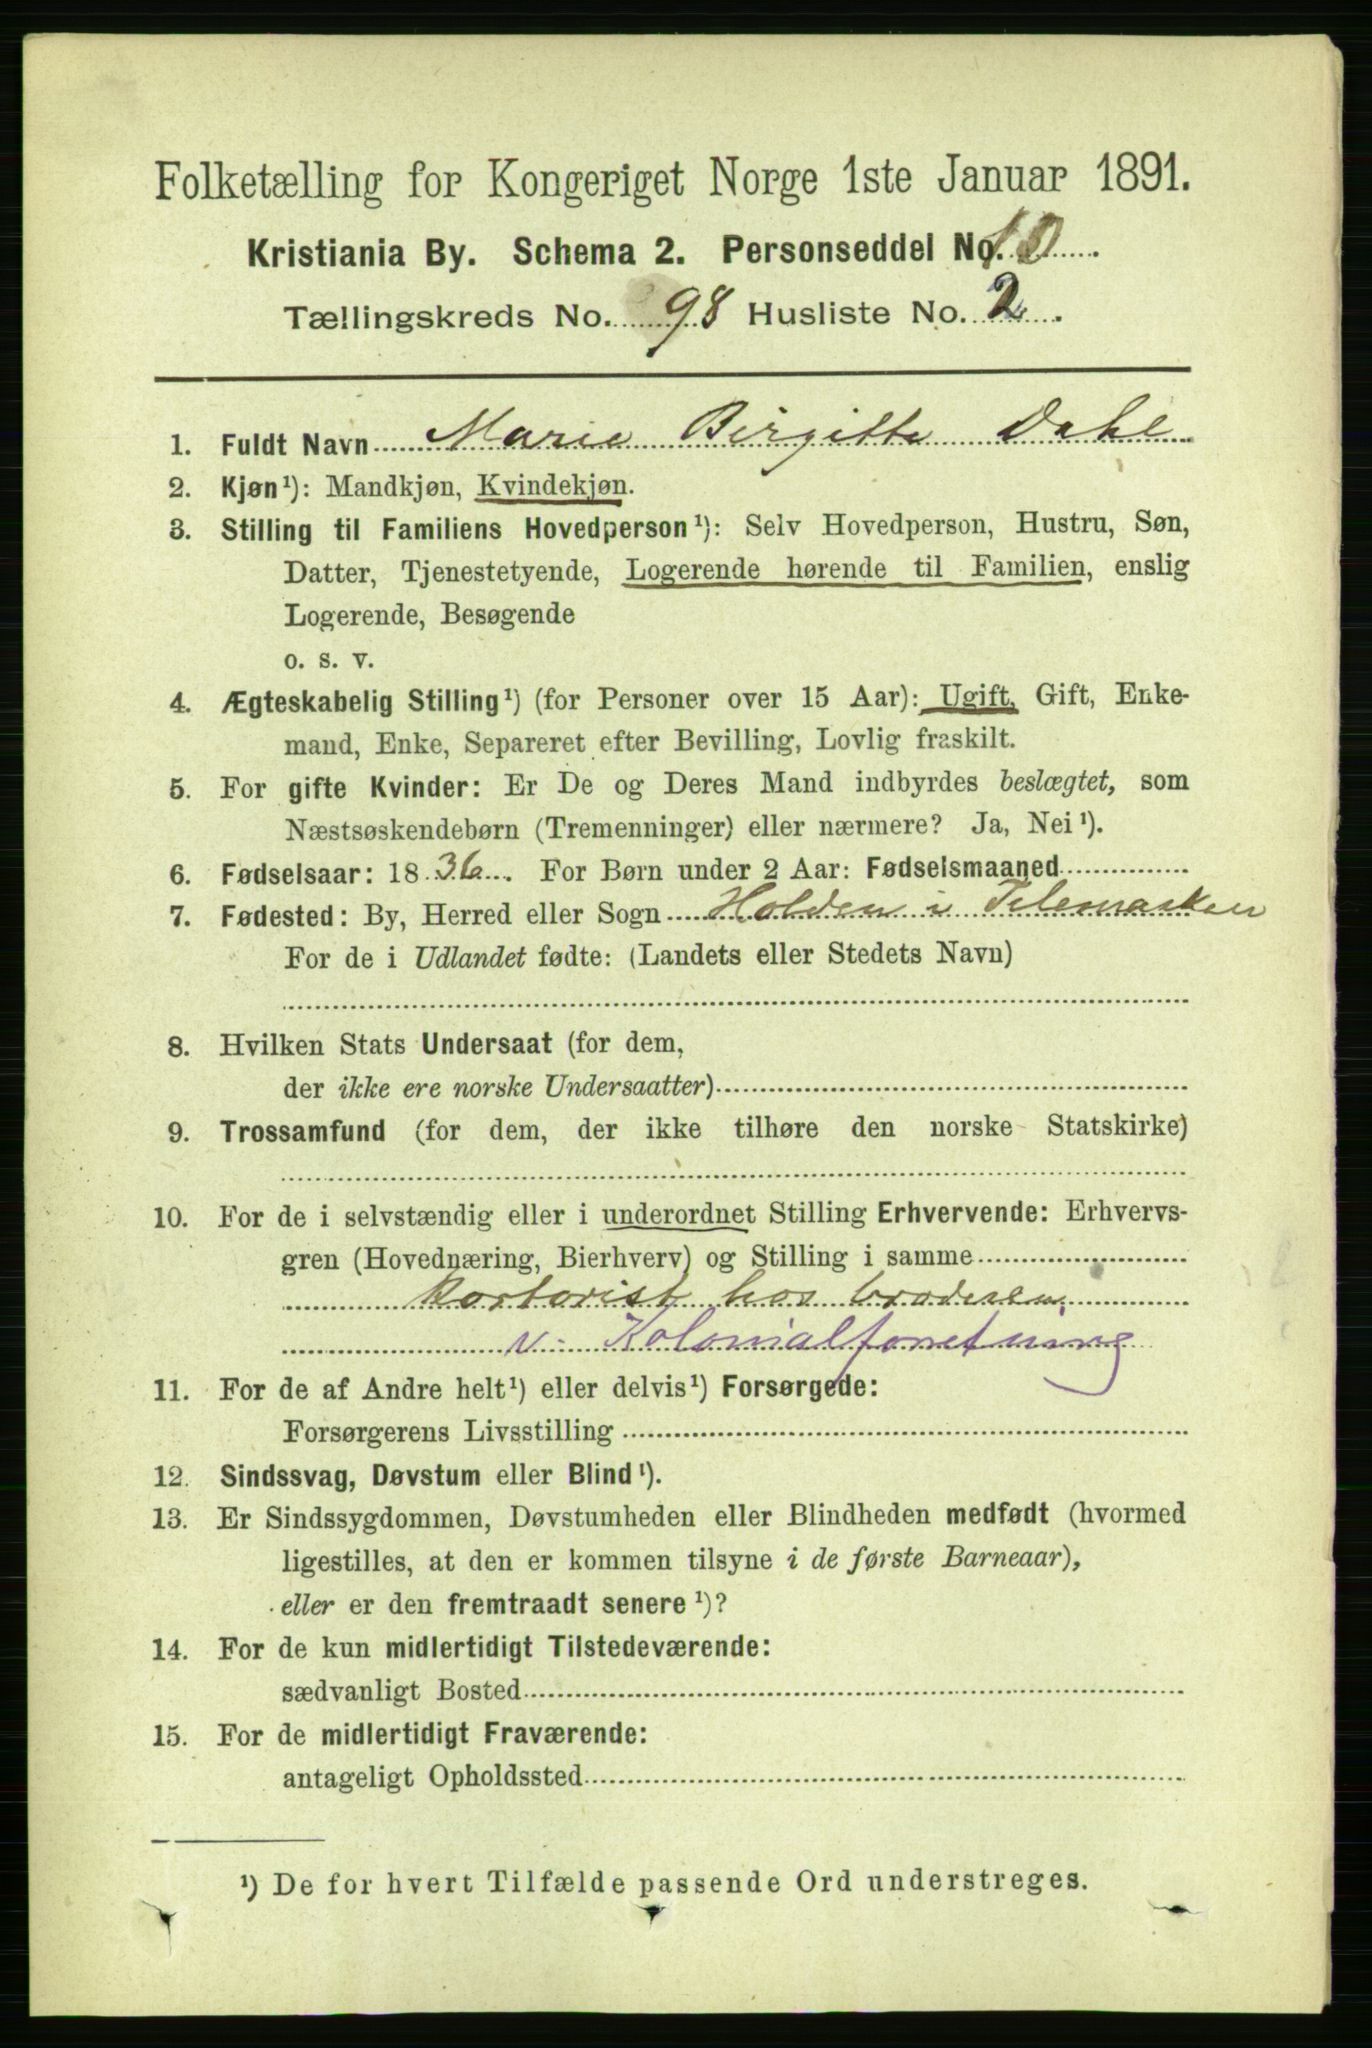 Folketælling for Kongeriget Norge 1ste Januar 1891.
Kristiania By. Schema 2. Personseddel No. 10
Tællingskreds No. 98 Husliste No. 2.
1. Fuldt Navn Marie Birgitte Dahl
2. Kjøn¹): Mandkjøn, Kvindekjøn.
3. Stilling til Familiens Hovedperson¹): Selv Hovedperson, Hustru, Søn,
Datter, Tjenestetyende, Logerende hørende til Familien, enslig
Logerende, Besøgende
o. s. v.
4. Ægteskabelig Stilling¹) (for Personer over 15 Aar): Ugift, Gift, Enke-
mand, Enke, Separeret efter Bevilling, Lovlig fraskilt.
5. For gifte Kvinder: Er De og Deres Mand indbyrdes beslægtet, som
Næstsøskendebørn (Tremenninger) eller nærmere? Ja, Nei¹).
6. Fødselsaar: 1836. For Børn under 2 Aar: Fødselsmaaned
7. Fødested: By, Herred eller Sogn Holden i Telemarken
For de i Udlandet fødte: (Landets eller Stedets Navn)
8. Hvilken Stats Undersaat (for dem,
der ikke ere norske Undersaatter)
9. Trossamfund (for dem, der ikke tilhøre den norske Statskirke)
10. For de i selvstændig eller i underordnet Stilling Erhvervende: Erhvervs-
gren (Hovednæring, Bierhverv) og Stilling i samme
Kontorist hos broderen
v. Kolonialforretning
11. For de af Andre helt¹) eller delvis¹) Forsørgede:
Forsørgerens Livsstilling
12. Sindssvag, Døvstum eller Blind¹).
13. Er Sindssygdommen, Døvstumheden eller Blindheden medfødt (hvormed
ligestilles, at den er kommen tilsyne i de første Barneaar),
eller er den fremtraadt senere¹)?
14. For de kun midlertidigt Tilstedeværende:
sædvanligt Bosted
15. For de midlertidigt Fraværende:
antageligt Opholdssted
¹) De for hvert Tilfælde passende Ord understreges.